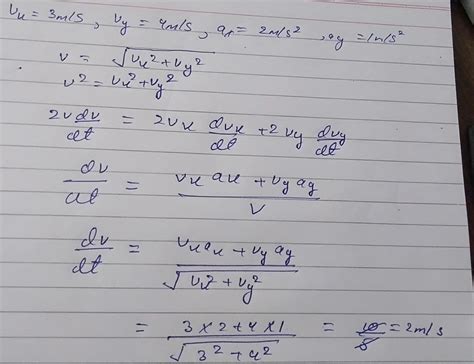 vx = 3m/s, vy = 4m/s, ax = 2m/s², ay = 1m/s²
v = √(vx² + vy²)
v² = vx² + vy²
2v dv/dt = 2vx dvx/dt + 2vy dvy/dt
dv/dt = (vx ax + vy ay)/v
dv/dt = (vx ax + vy ay)/√(vx² + vy²)
= (3 × 2 + 4 × 1)/√(3² + 4²) = 10/5 = 2m/s